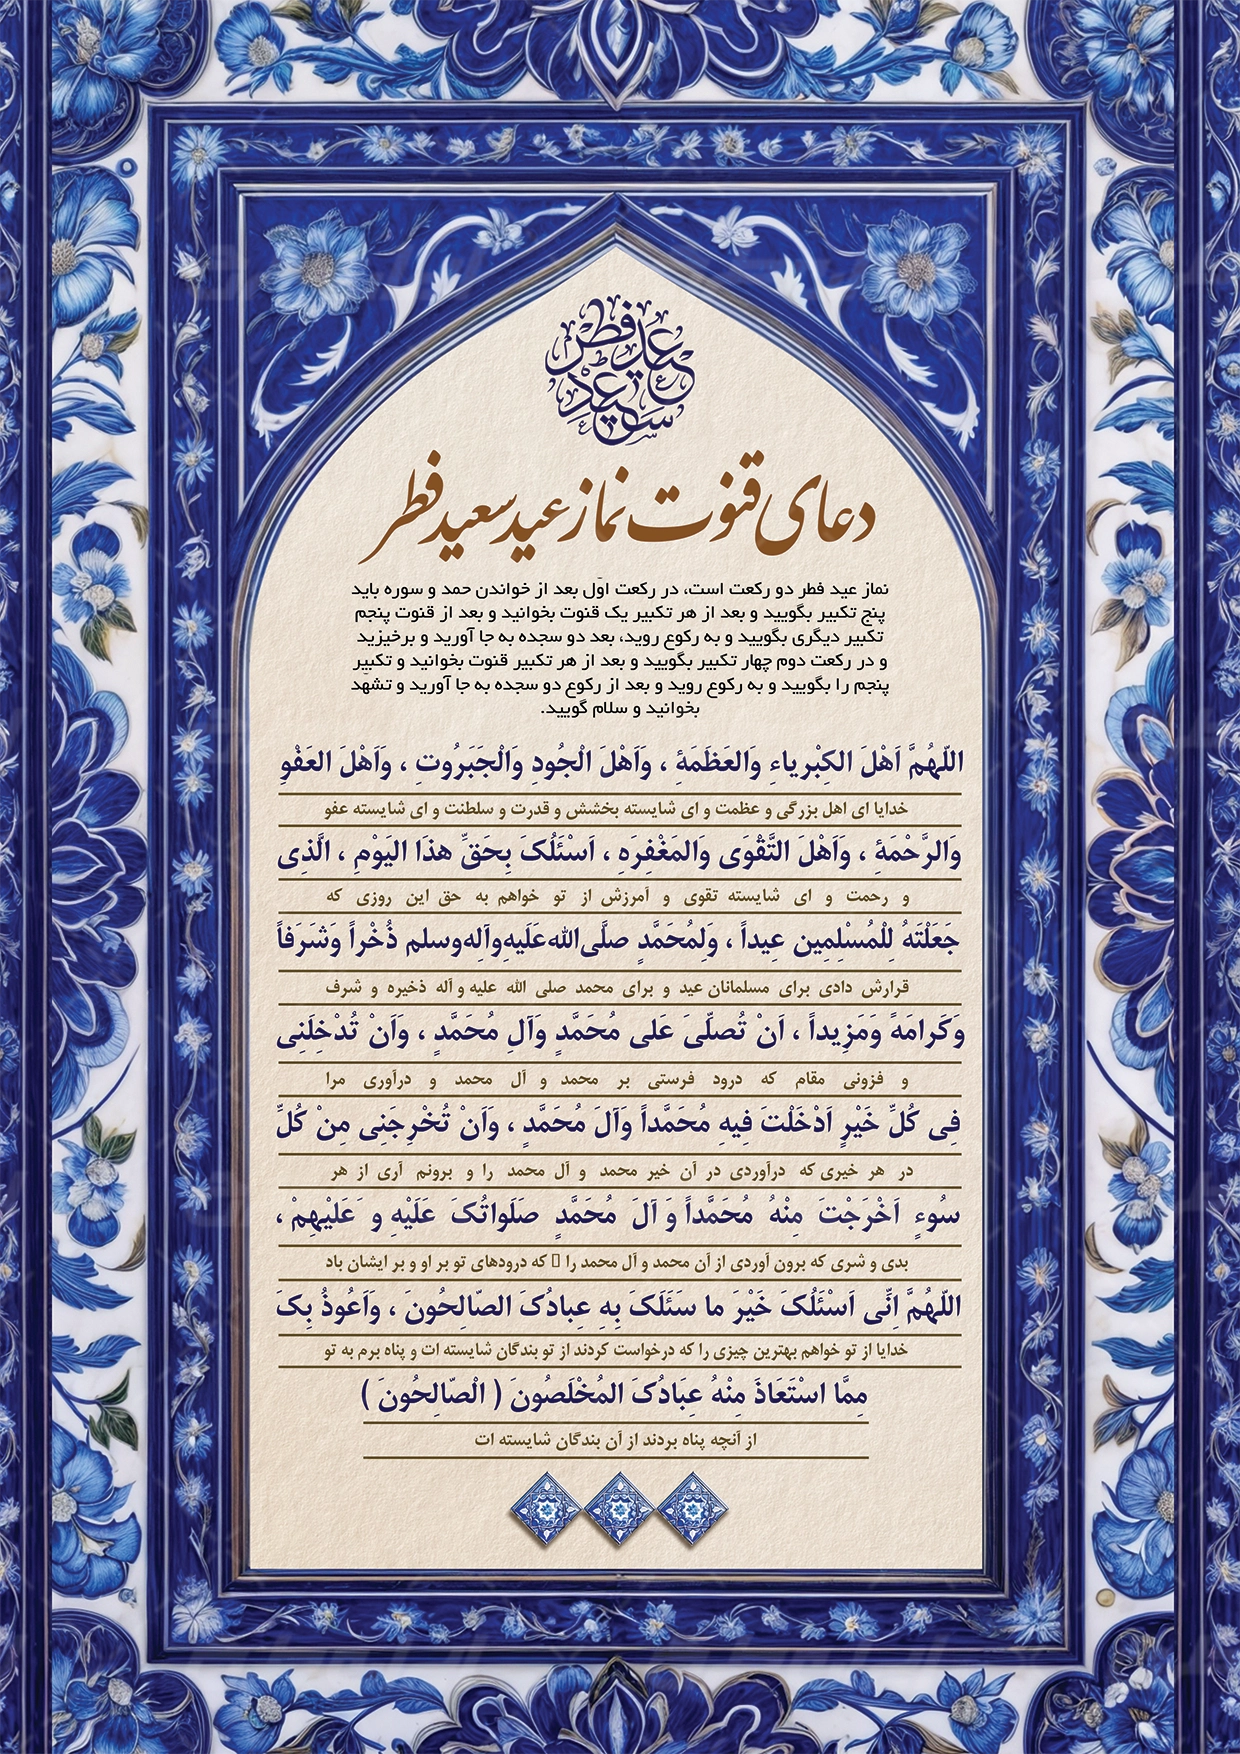 عید فطر
سعید
دعای قنوت نماز عید سعید فطر
نماز عید فطر دو رکعت است، در رکعت اوّل بعد از خواندن حمد و سوره باید
پنج تکبیر بگویید و بعد از هر تکبیر یک قنوت بخوانید و بعد از قنوت پنجم
تکبیر دیگری بگویید و به رکوع روید، بعد دو سجده به جا آورید و برخیزید
و در رکعت دوم چهار تکبیر بگویید و بعد از هر تکبیر قنوت بخوانید و تکبیر
پنجم را بگویید و به رکوع روید و بعد از رکوع دو سجده به جا آورید و تشهّد
بخوانید و سلام گویید.
اللّهُمَّ اَهْلَ الکِبْریاءِ وَالعَظَمَةِ ، وَاَهْلَ الْجُودِ وَالْجَبَرُوتِ ، وَاَهْلَ العَفْوِ
خدایا ای اهل بزرگی و عظمت و ای شایسته بخشش و قدرت و سلطنت و ای شایسته عفو
وَالرَّحْمَةِ ، وَاَهْلَ التَّقْوَی وَالمَغْفِرَهِ ، اَسْئَلُکَ بِحَقِّ هذَا الیَوْمِ ، الَّذِی
و رحمت و ای شایسته تقوی و آمرزش از تو خواهم به حق این روزی که
جَعَلْتَهُ لِلْمُسْلِمِین عِیداً ، وَلِمُحَمَّدٍ صلَّی‌الله‌عَلَیهِ‌وآلِه‌وسلم ذُخْراً وَشَرَفاً
قرارش دادی برای مسلمانان عید و برای محمد صلی الله علیه و آله ذخیره و شرف
وَکَرامَهً وَمَزِیداً ، اَنْ تُصلّیَ عَلی مُحَمَّدٍ وَآلِ مُحَمَّدٍ ، وَاَنْ تُدْخِلَنِی
و فزونی مقام که درود فرستی بر محمد و آل محمد و درآوری مرا
فِی کُلِّ خَیْرٍ اَدْخَلْتَ فِیهِ مُحَمَّداً وَآلَ مُحَمَّدٍ ، وَاَنْ تُخْرِجَنِی مِنْ کُلِّ
در هر خیری که درآوردی در آن خیر محمد و آل محمد را و برونم آری از هر
سُوءٍ اَخْرَجْتَ مِنْهُ مُحَمَّداً وَ آلَ مُحَمَّدٍ صَلَواتُکَ عَلَیْهِ وَ عَلَیْهِمْ ،
بدی و شری که برون آوردی از آن محمد و آل محمد را ▯ که درودهای تو بر او و بر ایشان باد
اللّهُمَّ اِنِّی اَسْئَلُکَ خَیْرَ ما سَئَلَکَ بِهِ عِبادُکَ الصّالِحُونَ ، وَاَعُوذُ بِکَ
خدایا از تو خواهم بهترین چیزی را که درخواست کردند از تو بندگان شایسته ات و پناه برم به تو
مِمَّا اسْتَعَاذَ مِنْهُ عِبَادُکَ المُخْلَصُونَ ( الْصّالِحُونَ )
از آنچه پناه بردند از آن بندگان شایسته ات